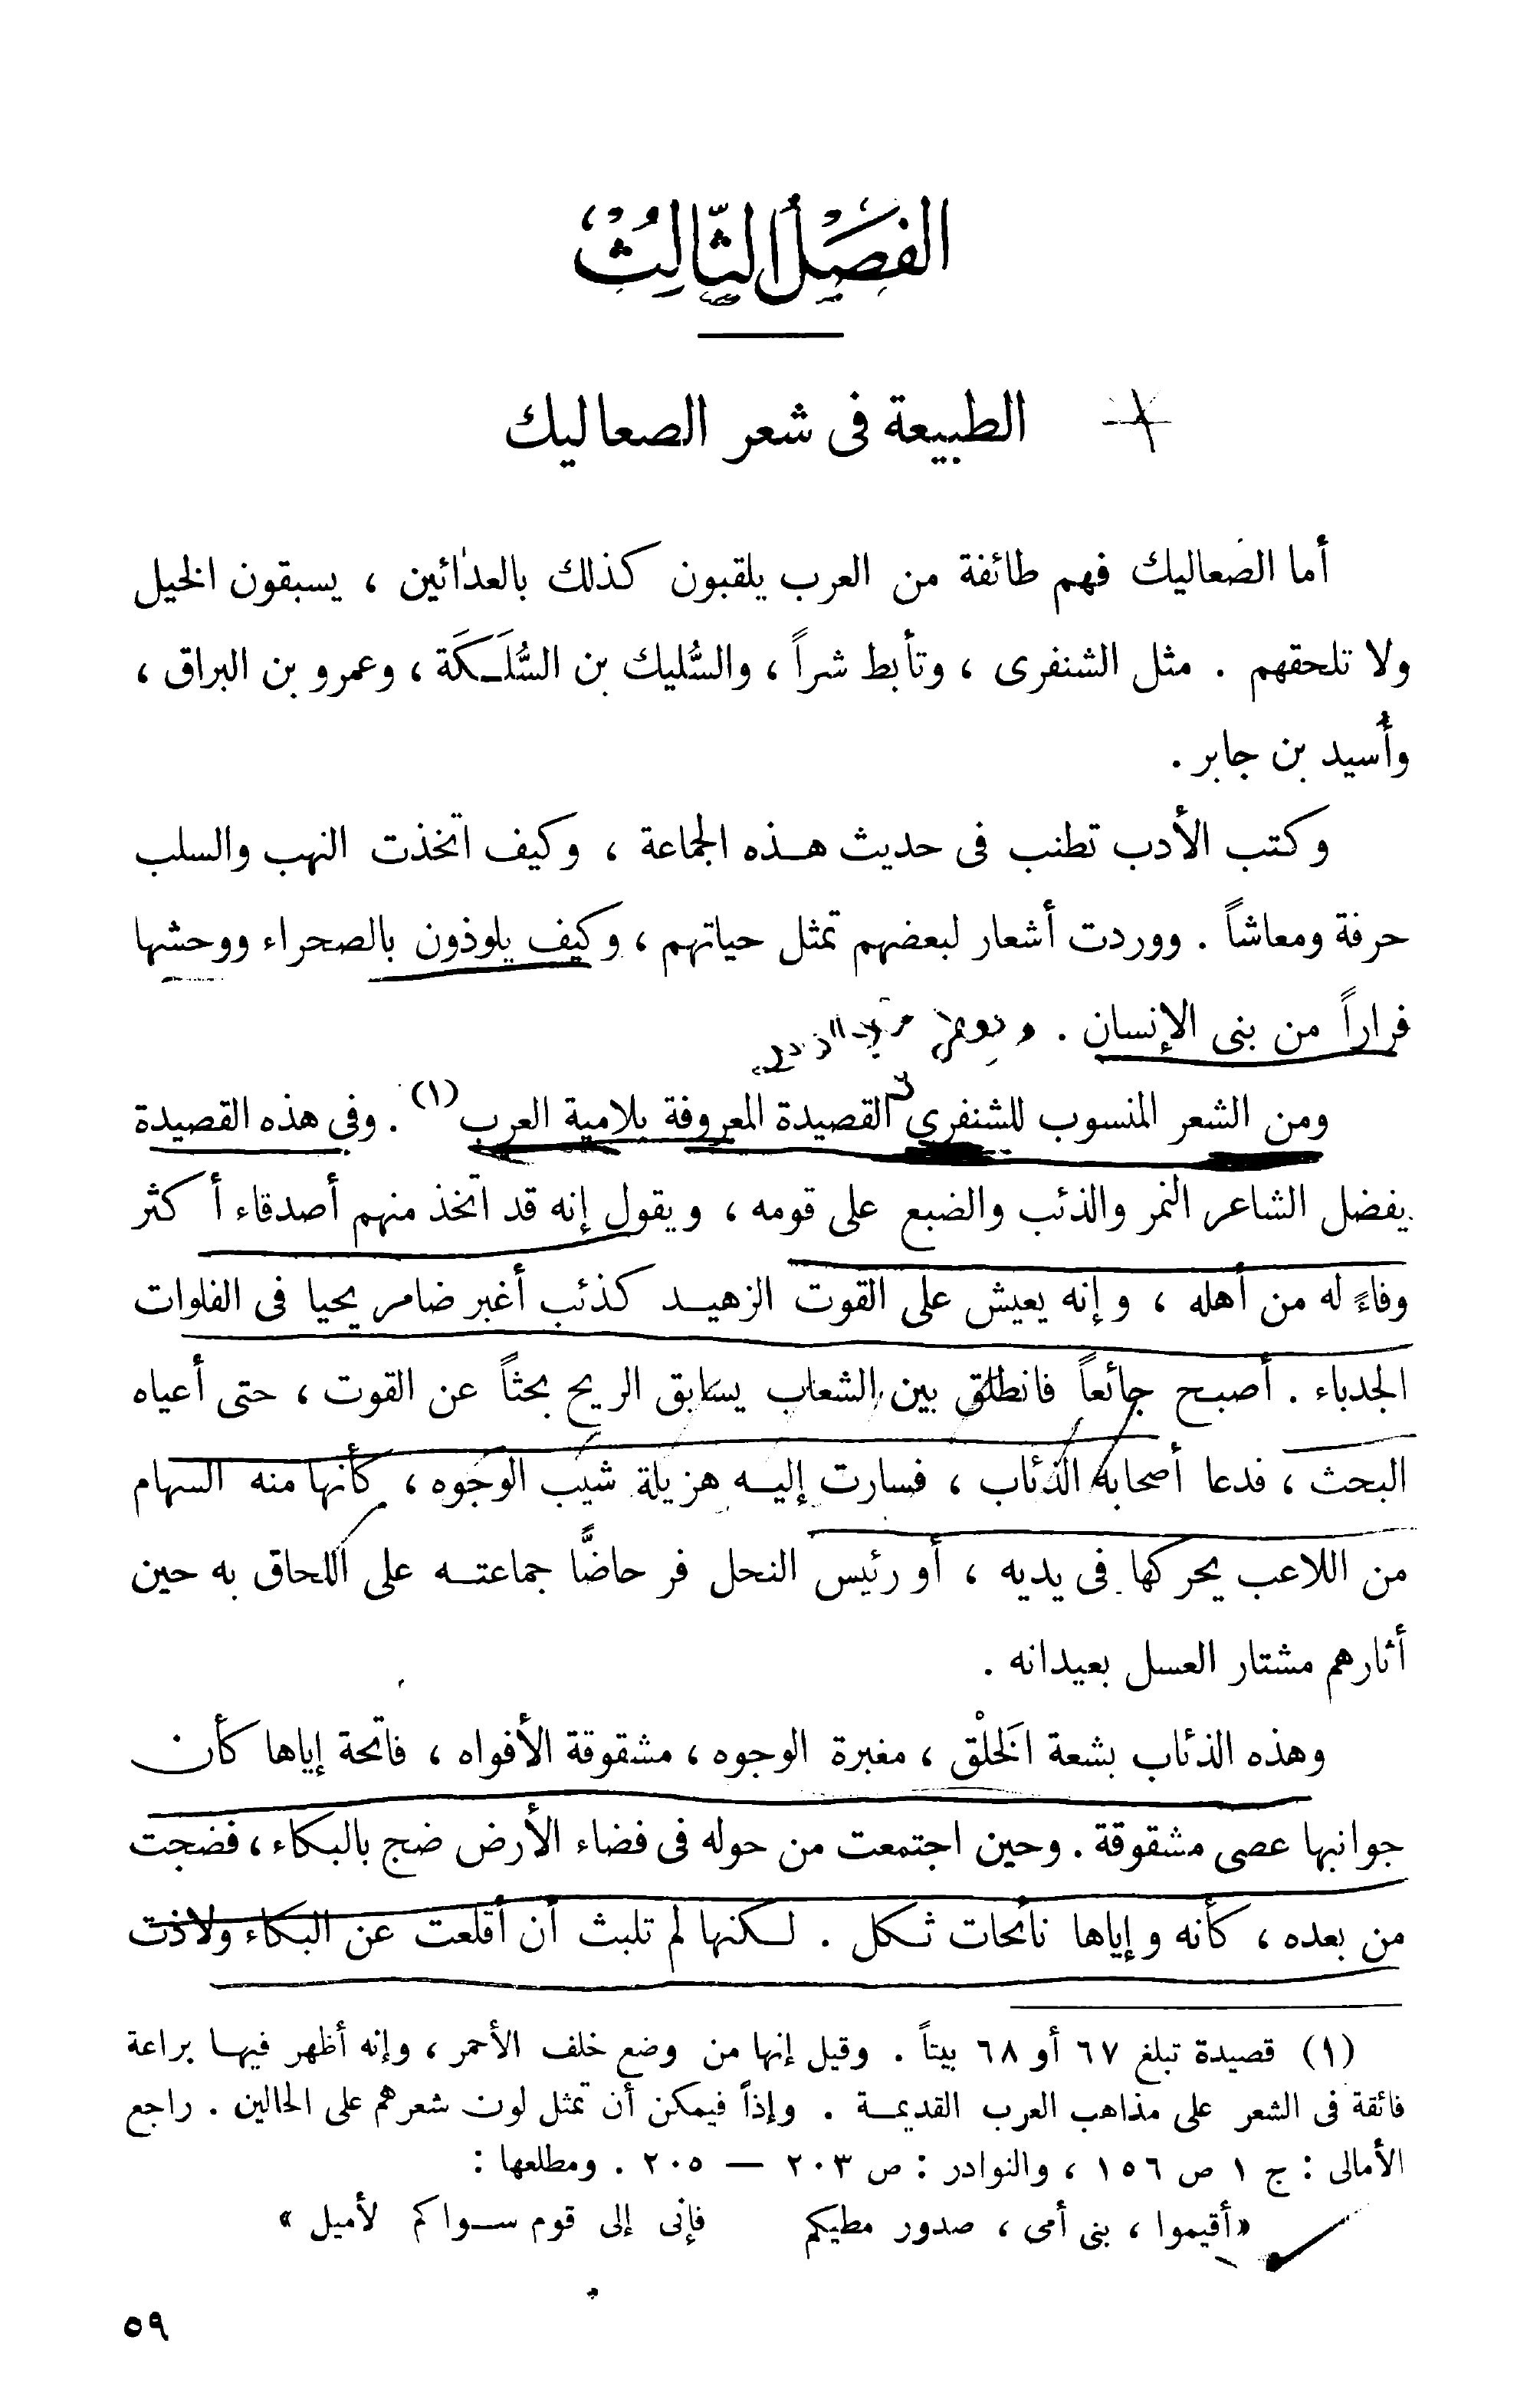 الفصل الثالث
الطبيعة فى شعر الصعاليك
أما الصعاليك فهم طائفة من العرب يلقبون كذلك بالعدائين ، يسبقون الخيل
ولا تلحقهم . مثل الشنفرى ، وتأبط شراً ، والسُّليك بن السُّلَـكَة ، وعمرو بن البراق ،
وأُسيد بن جابر .
وكتب الأدب تطنب فى حديث هـذه الجماعة ، وكيف اتخذت النهب والسلب
حرفة ومعاشاً . ووردت أشعار لبعضهم تمثل حياتهم ، وكيف يلوذون بالصحراء ووحشها
فراراً من بنى الإنسان .
ومن الشعر المنسوب للشنفرى القصيدة المعروفة بلامية العرب (١) . وفى هذه القصيدة
يفضل الشاعر النمر والذئب والضبع على قومه ، ويقول إنه قد اتخذ منهم أصدقاء أكثر
وفاءً له من أهله ، وإنه يعيش على القوت الزهيـد كذئب أغبر ضامر يحيا فى الفلوات
الجدباء . أصبح جائعاً فانطلق بين الشعاب يسابق الريح بحثاً عن القوت ، حتى أعياه
البحث ، فدعا أصحابه الذئاب ، فسارت إليـه هزيلة شيب الوجوه ، كأنها منه السهام
من اللاعب يحركها فى يديه ، أو رئيس النحل فر حاضًّا جماعتـه على اللحاق به حين
أثارهم مشتار العسل بعيدانه .
وهذه الذئاب بشعة الخَلْق ، مغبرة الوجوه ، مشقوقة الأفواه ، فاتحة إياها كأن
جوانبها عصى مشقوقة . وحين اجتمعت من حوله فى فضاء الأرض ضج بالبكاء ، فضجت
من بعده ، كأنه وإياها نائحات ثـكل . لـكنها لم تلبث أن أقلعت عن البكاء ولاذت
(١) قصيدة تبلغ ٦٧ أو ٦٨ بيتاً . وقيل إنها من وضع خلف الأحمر ، وإنه أظهر فيهـا براعة
فائقة فى الشعر على مذاهب العرب القديمـة . وإذاً فيمكن أن تمثل لون شعرهم على الحالين . راجع
الأمالى : ج ١ ص ١٥٦ ، والنوادر : ص ٢٠٣ — ٢٠٥ . ومطلعها :
«أقيموا ، بنى أمى ، صدور مطيكم فإنى إلى قوم سـواكم لأميل »
٥٩